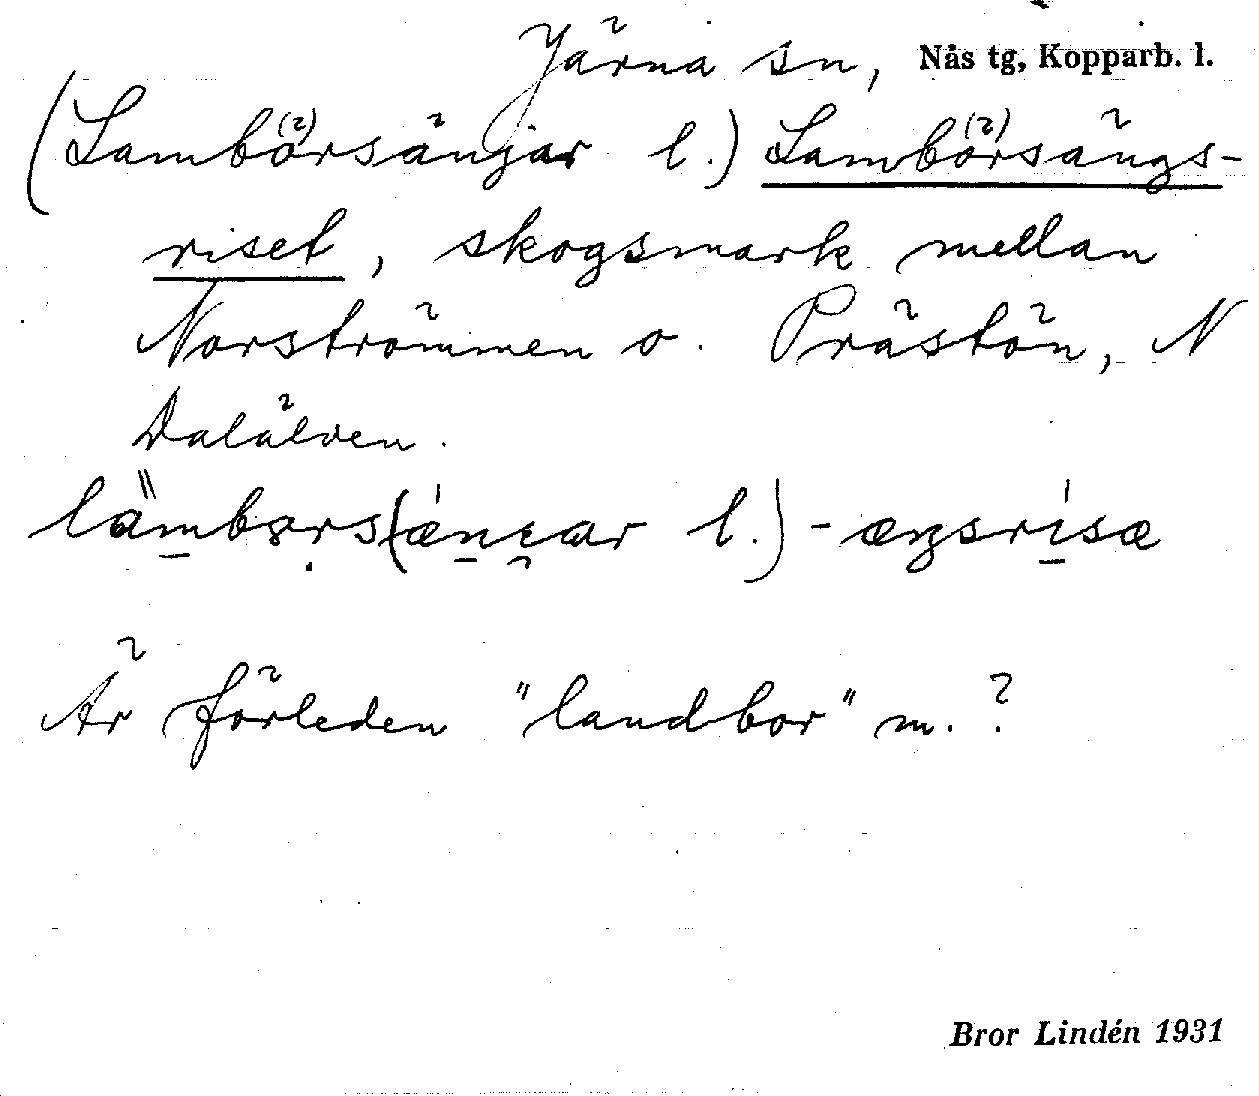 Järna sn, Nås tg, Kopparb. l.
(Lambörsängar l.) Lambörsängs-
riset, skogsmark mellan
Norströmmen o. Prästön, N
Dalälven.
Är förleden "landbor" m. ?
Bror Lindén 1931